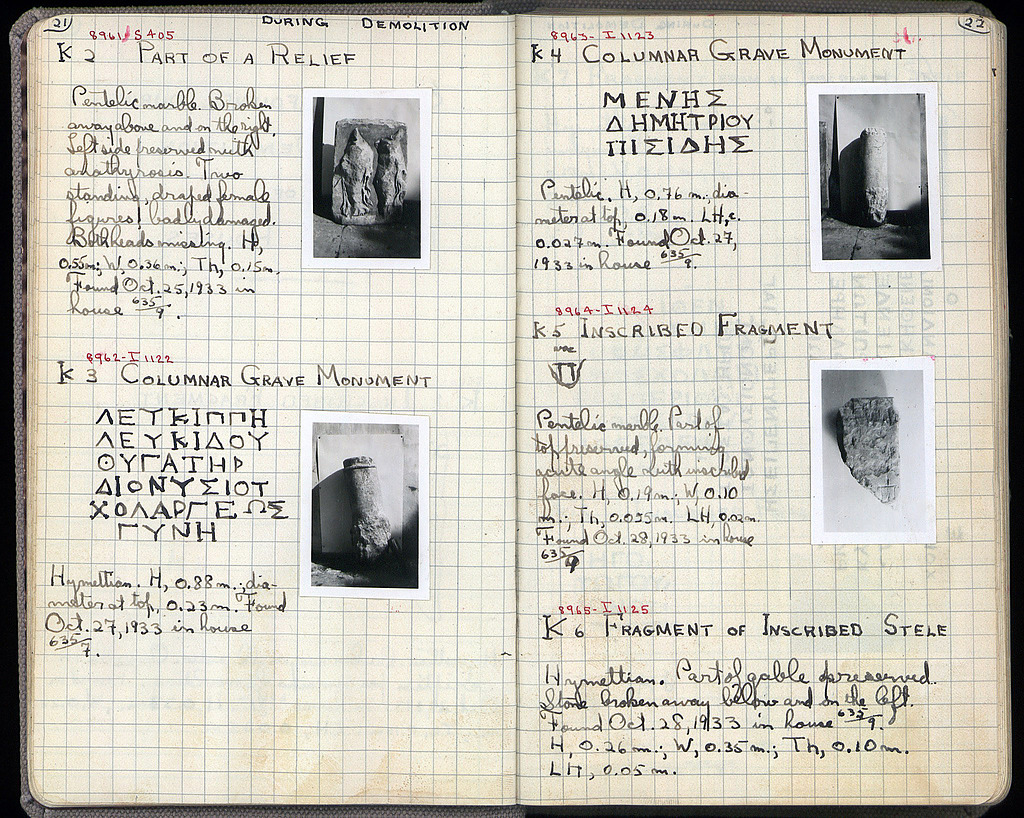 21
DURING DEMOLITION
8961 S 405
K 2 PART OF A RELIEF
Pentelic marble. Broken
away above and on the right.
Left side preserved with
anathyrosis. Two
standing, draped female
figures, badly damaged.
Both heads missing. H,
0.55m; W, 0.36m; Th, 0.15m.
Found Oct. 25, 1933 in
house 635/9.
8962-I 1122
K 3 COLUMNAR GRAVE MONUMENT
ΛΕΥΚΙΠΠΗ
ΛΕΥΚΙΔΟΥ
ΘΥΓΑΤΗΡ
ΔΙΟΝΥΣΙΟΥ
ΧΟΛΑΡΓΕΩΣ
ΓΥΝΗ
Hymettian. H, 0.88 m.; dia-
meter at top, 0.23 m. Found
Oct. 27, 1933 in house
635/7.
22
8963-I 1123
K 4 COLUMNAR GRAVE MONUMENT
ΜΕΝΗΣ
ΔΗΜΗΤΡΙΟΥ
ΠΙΣΙΔΗΣ
Pentelic. H, 0.76 m.; dia-
meter at top, 0.18 m. LH, c.
0.027 m. Found Oct. 27,
1933 in house 635/9.
8964-I 1124
K 5 INSCRIBED FRAGMENT
Pentelic marble. Part of
top preserved, forming
acute angle with inscribed
face. H, 0.19 m.; W, 0.10
m.; Th, 0.055 m. LH, 0.02 m.
Found Oct. 28, 1933 in house
635/9
8965-I 1125
K 6 FRAGMENT OF INSCRIBED STELE
Hymettian. Part of gable preserved.
Stone broken away below and on the left.
Found Oct. 28, 1933 in house 635/9.
H, 0.26 m.; W, 0.35 m.; Th, 0.10 m.
LH, 0.05 m.